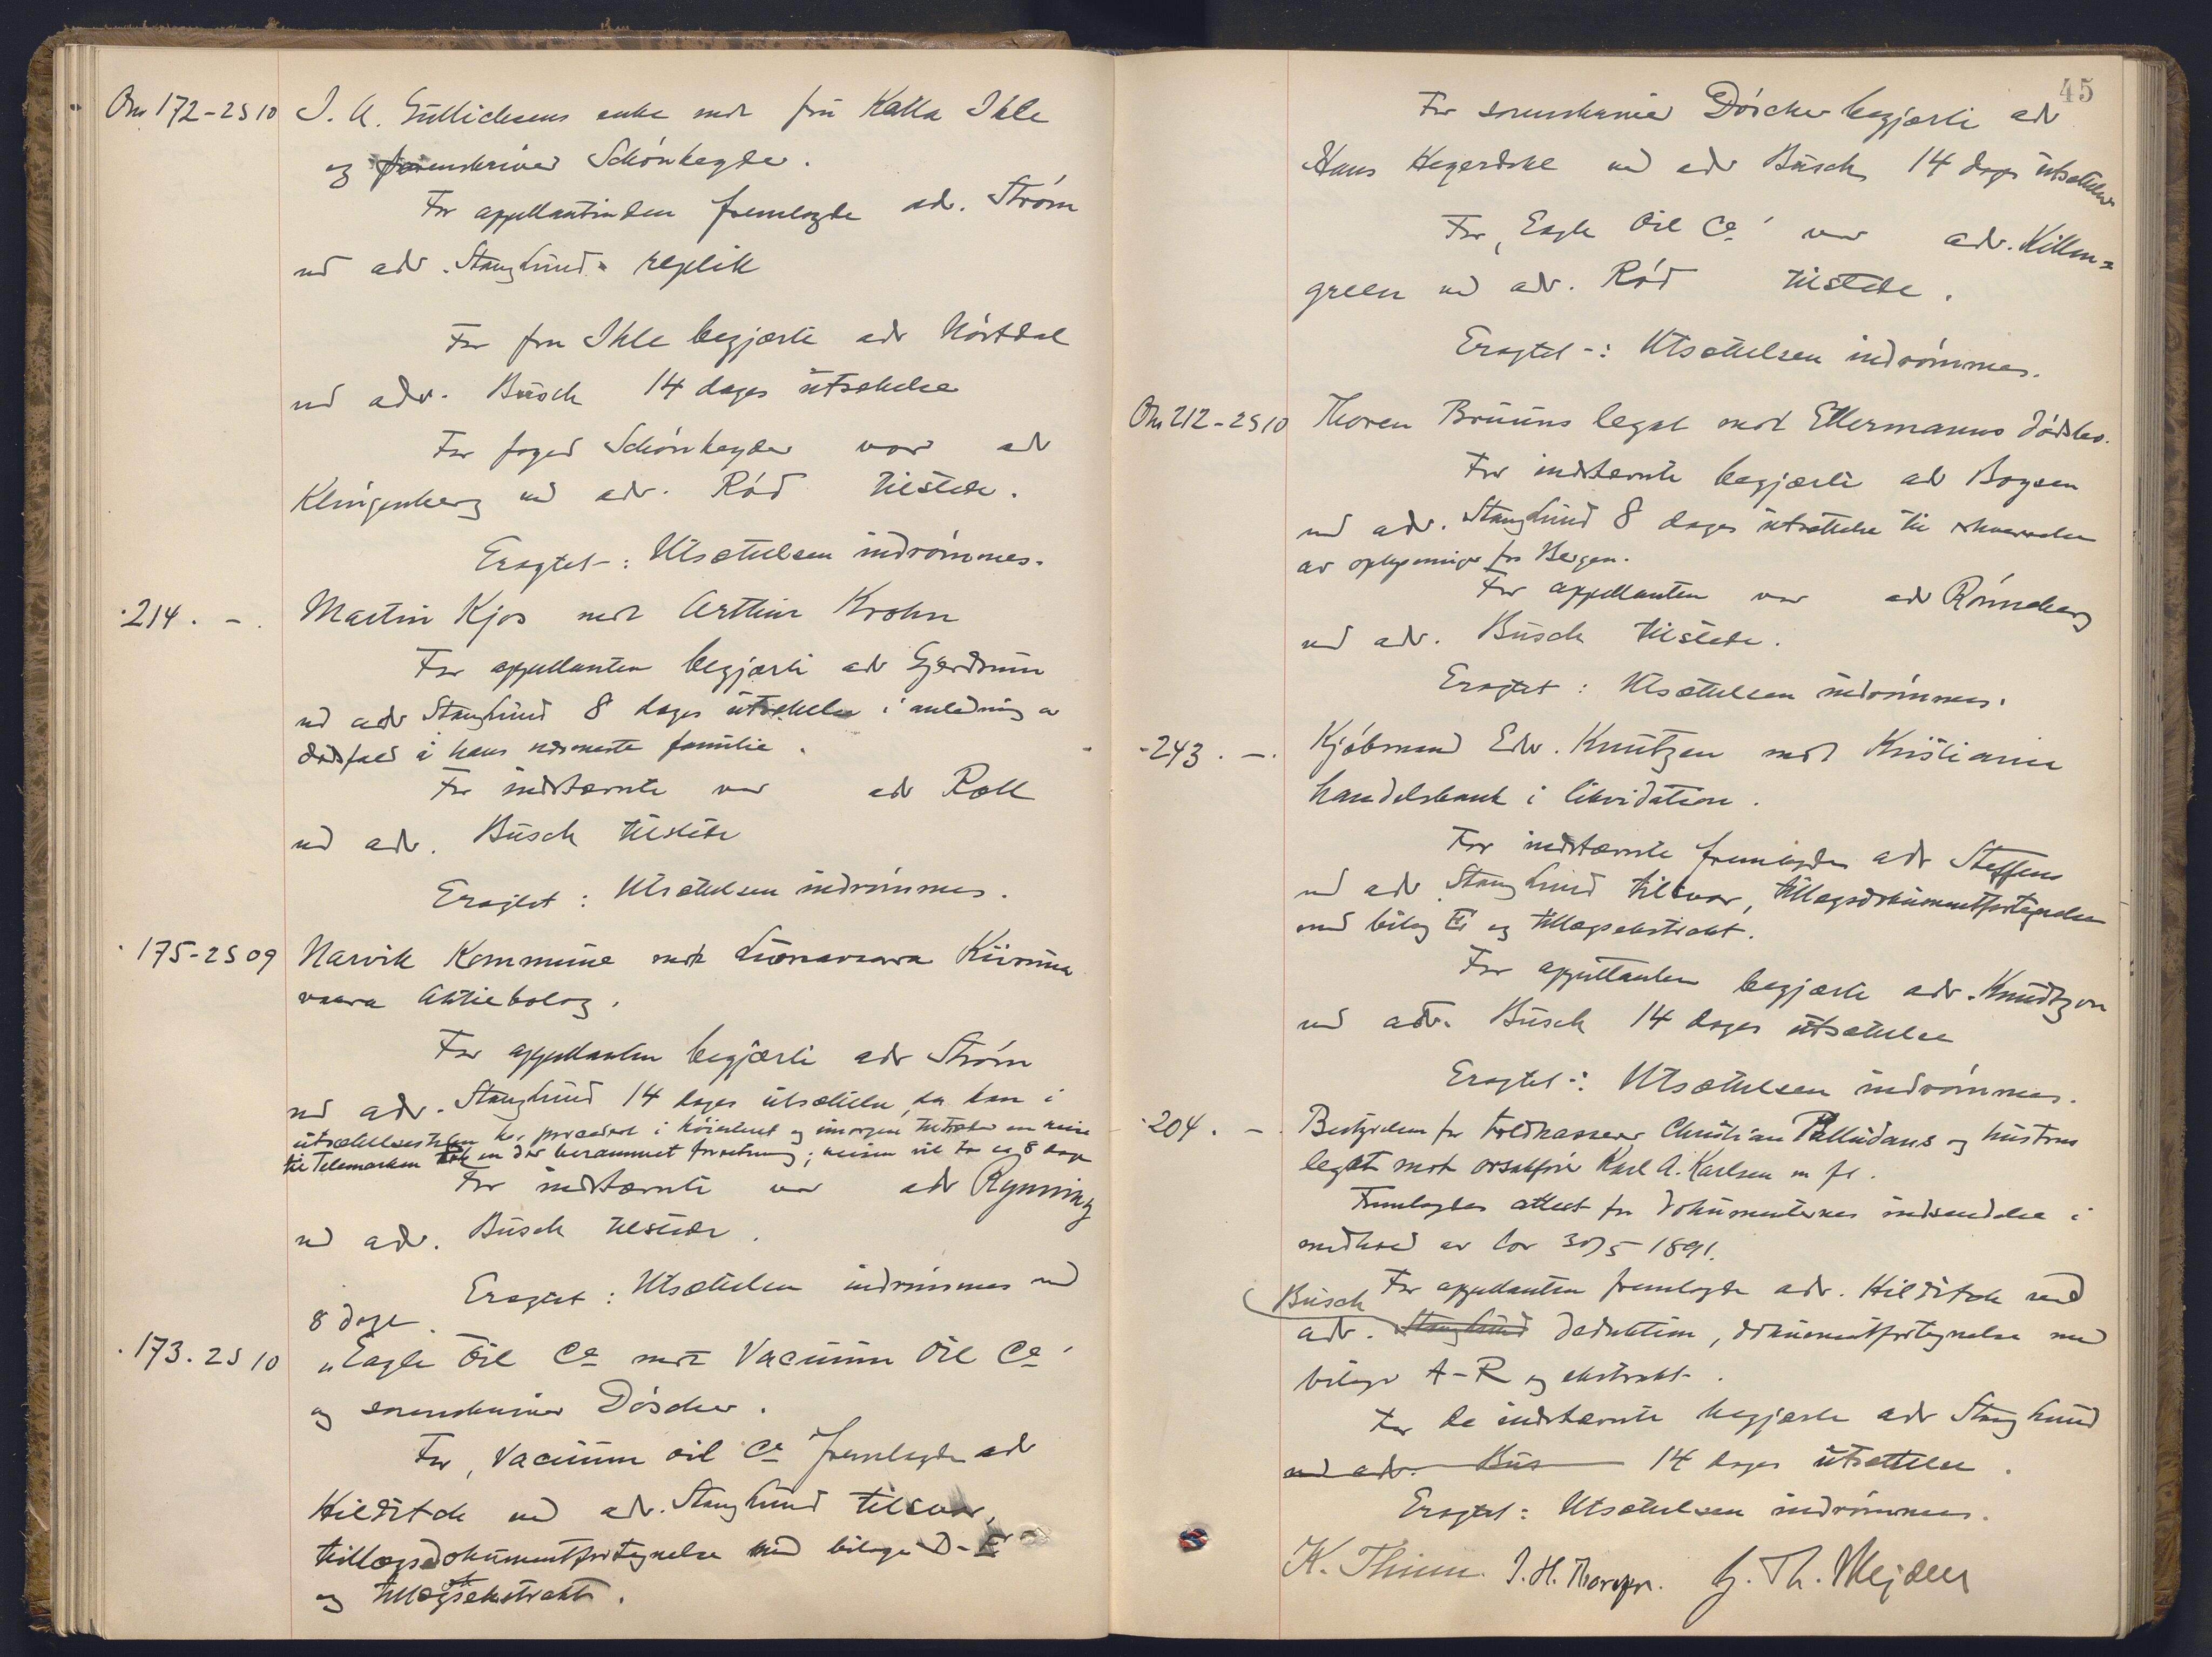 Om 172-2S10 I. A. Gullichsens enke mot fru Kalla Ihle
og sorenskriver Schönheyder.
For appellantinden fremlagde adv. Strøm
ved adv. Stang Lund replik
For fru Ihle begjærte adv Hörtdal
ved adv. Busch 14 dages utsettelse
For foged Schönheyder var adv
Klingenberg ved adv. Röd tilstede.
Eragtet-: Utsættelsen indrömmes.
214. -. Martin Kjos mot Arthur Krohn
For appellanten begjærte adv Gjerdrum
ved adv Stang Lund 8 dages utsettelse i anledning av
dødsfald i hans nærmeste familie.
For indstævnte var adv Roll
ved adv. Busch tilstede
Eragtet: Utsættelsen indrømmes.
175-2S09 Narvik Kommune mot Luossavaara Kiiruna
vaara Aktiebolag.
For appellanten begjærte adv Strøm
ved adv. Stang Lund 14 dages utsættelse, da han i
utsættelsestiden har procedert i Høiesteret og imorgen tiltræder en reise
til Telemarken en der berammet forretning; reisen vil ta ca 8 dage
For indstævnte var adv Rynning
ved adv. Busch tilstede.
Eragtet: Utsættelsen indrømmes med
8 dage.
173. 2S10 "Eagle Oil Co mot Vacuum Oil Co"
og sorenskriver Döscher.
For, Vacuum oil Co fremlagde adv
Hilditch ved adv. Stang Lund tilsvar,
tillægsdokumentfortegnelse med bilage D-E
og tillægsekstrakt.
45
For sorenskriver Döscher begjærte adv
Hans Hegerdahl ved adv Busch 14 dages utsættelse
For, Eagle Oil Co" var adv. Killen=
green ved adv. Röd tilstede.
Eragtet-: Utsættelsen indrömmes.
Om 212-2S10 Thoren Bruuns legat mot Ellermanns dödsbo.
For indstævnte begjærte adv Boysen
ved adv. Stang Lund 8 dages utsættelse til erhvervelse
av oplysninger fra Bergen.
For appellanten var adv Rönneberg
ved adv. Busch tilstede.
Eragtet: Utsættelsen indrømmes.
-243. -. Kjöbmand Edv. Knutzen mot Kristiania
handelsbank i likvidation.
For indstævnte fremlagde adv Steffens
ved adv Stang Lund tilsvar, tillægsdokumentfortegnelse
med bilag E og tillægsekstrakt.
For appellanten begjærte adv. Knudtzon
ved adv. Busch 14 dages utsættelse
Eragtet-: Utsættelsen indrömmes.
-204. -. Bestyrelsen for toldkasserer Christian Palludans og hustrus
legat mot orsakfører Karl A. Karlsen m fl.
Fremlagdes attest for dokumenternes indsendelse i
medhold av lov 30/5 1891.
For appellanten fremlagde adv. Hilditch ved
Busch
adv. Stang Lund deduktion, dokumentfortegnelse med
bilage A-R og ekstrakt.
For de indstævnte begjærte adv Stang Lund
ved adv. Bus 14 dages utsættelse.
Eragtet: Utsættelsen indrømmes.
K. Thinn. J. H. Thoresen. G. Th. Mejdell